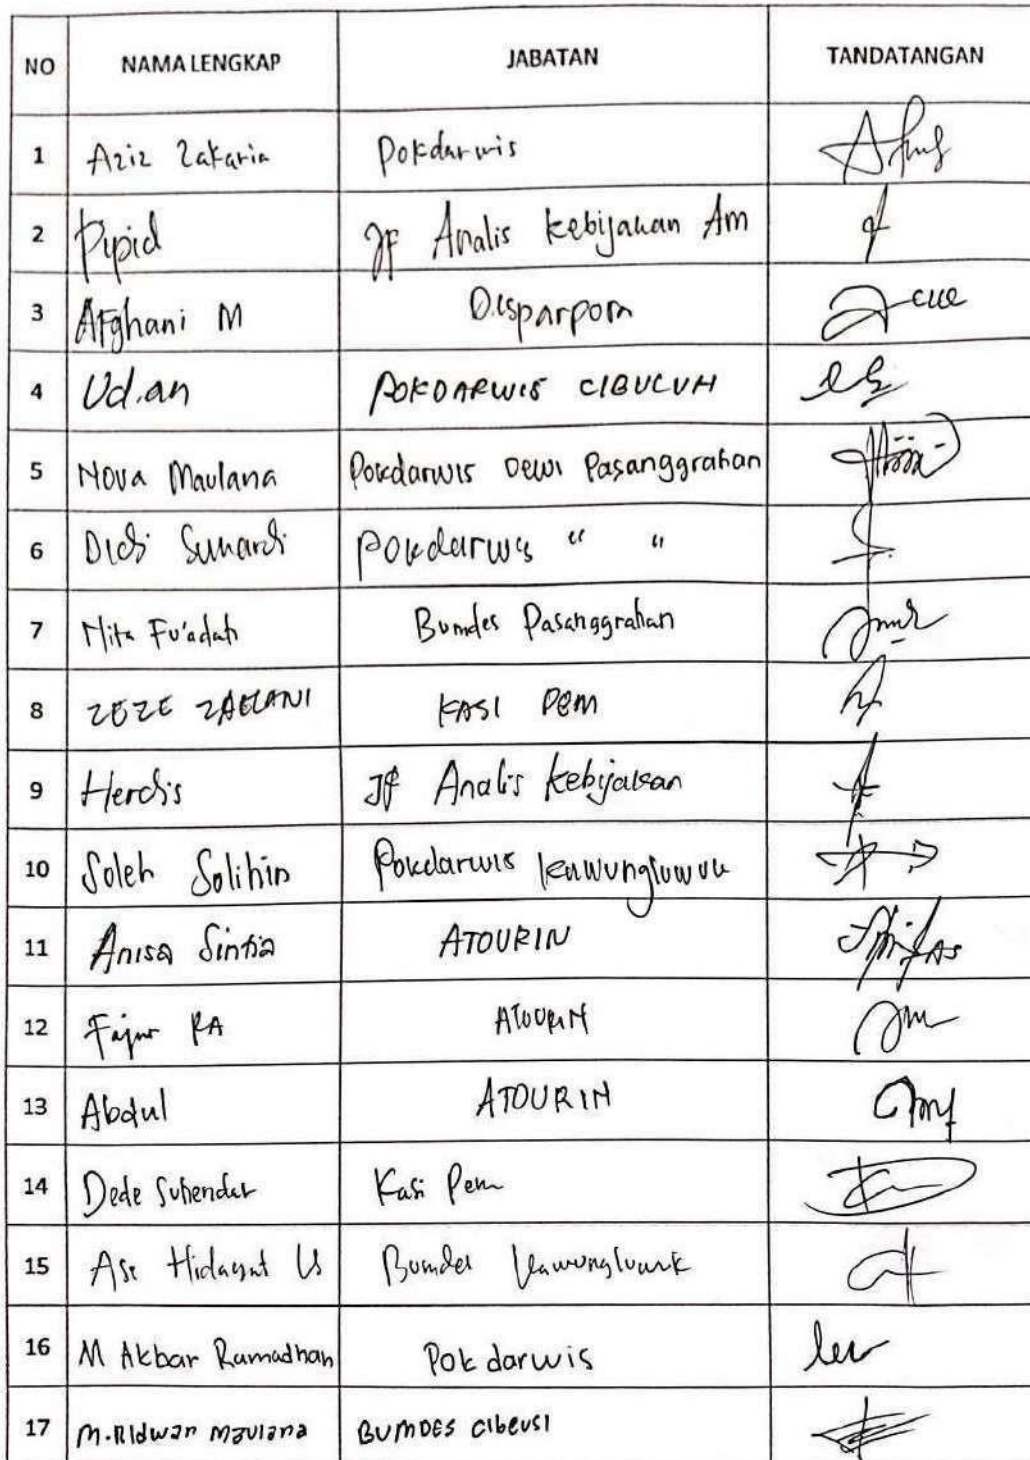 NO NAMA LENGKAP JABATAN TANDATANGAN
1 Aziz Zakaria Pokdarwis
2 Pipid JF Analis Kebijakan Am
3 Afghani M Disparpora
4 Udian POKDARWIS CIBULUH
5 Nova Maulana Pokdarwis Dewi Pasanggrahan
6 Didi Sunardi Pokdarwis " "
7 Mita Fu'adah Bumdes Pasanggrahan
8 ZEZE ZAELANI KASI PEM
9 Herdis JF Analis Kebijakan
10 Soleh Solihin Pokdarwis Kawungluwuk
11 Anisa Sintia ATOURIN
12 Fajar RA ATOURIN
13 Abdul ATOURIN
14 Dede Suhendar Kasi Pem
15 Hidayat Bumdes Kawungluwuk
16 M Akbar Ramadhan Pokdarwis
17 M. Ridwan Maulana BUMDES Cibeusi